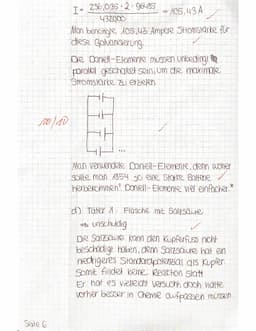 I = 256,035 · 2 · 96485 = 105,43 A
432000
Man benötigte 105,43 Ampere Stromstärke für
diese Galvanisierung.
Die Daniell-Elemente müssen unbedingt
parallel geschaltet sein, um die maximale
Stromstärke zu erzielen
10/10
...
Man verwendete Daniell-Elemente, denn woher
sollte man 1854 so eine starke Batterie
herbekommen? Daniell-Elemente viel einfacher.*
d) Täter 1: Flasche mit Salzsäure
→ unschuldig
Die Salzsäure kann den Kupferfuß nicht
beschädigt haben, denn Salzsäure hat ein
niedrigeres Standardpotenzial als Kupfer.
Somit findet keine Reaktion statt.
Er hat es vielleicht versucht doch hätte
vorher besser in Chemie aufpassen müssen
Seite 6